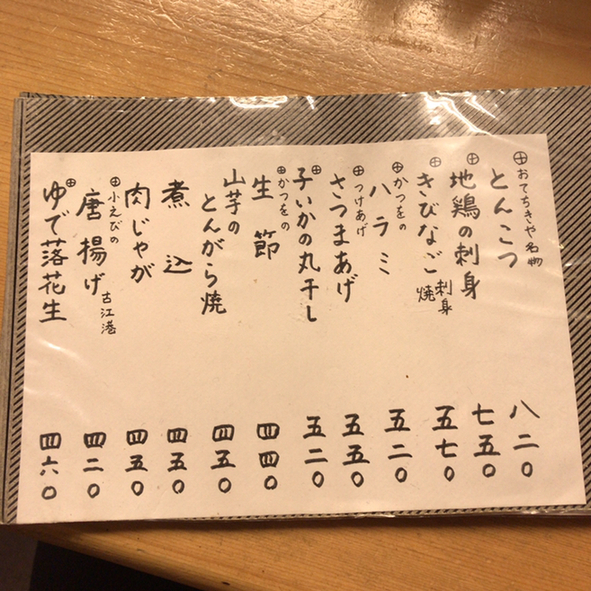 ⊕おてちきや名物
とんこつ 八二〇
⊕地鶏の刺身 七五〇
⊕きびなご 刺身 焼 五七〇
⊕かつをの
ハラミ 五二〇
つけあげ
さつまあげ 五五〇
⊕子いかの丸干し 五二〇
⊕かつをの
生節 四四〇
山芋の
とんがら焼 四五〇
煮込 四五〇
肉じゃが 四五〇
⊕小えびの
唐揚げ 古江港 四二〇
⊕ゆで落花生 四六〇